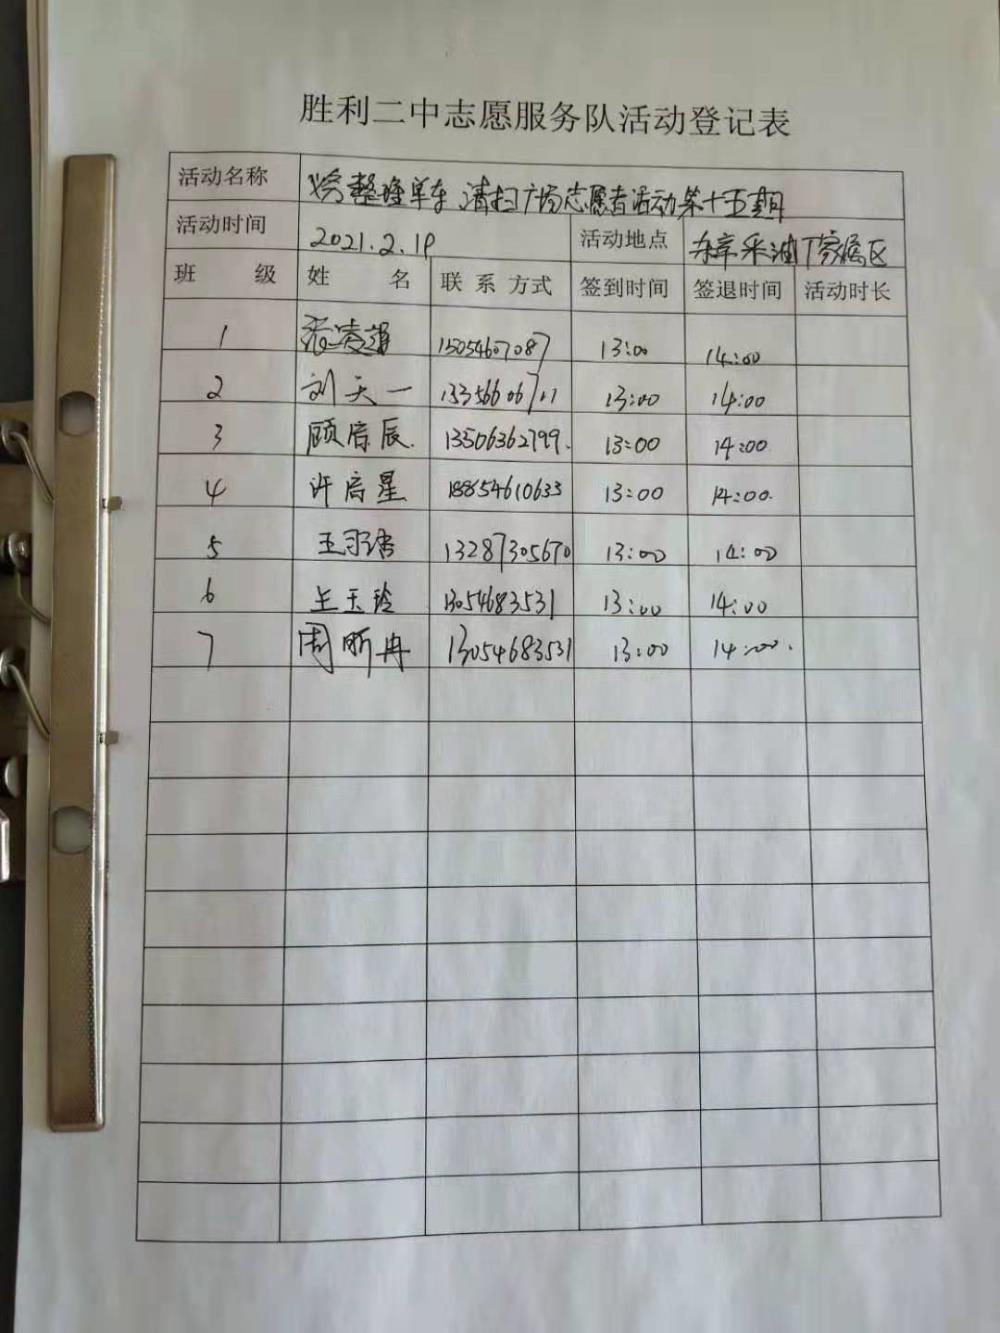 胜利二中志愿服务队活动登记表
活动名称 义务整理单车 清扫广场志愿者活动第十五期
活动时间 2021.2.19 活动地点 采油厂家属区
班 级 姓 名 联 系 方式 签到时间 签退时间 活动时长
1 15054607087 13:00 14:00
2 刘天一 13:00 14:00
3 顾 辰 13506362799. 13:00 14:00
4 许 星 18854610633 13:00 14:00.
5 王 13287305670 13:00 14:00
6 王玉玲 13054683531 13:00 14:00
7 周昕冉 13054683531 13:00 14:00.